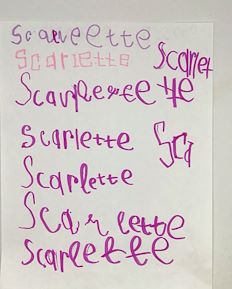 Scarlette
Scarlet
Scarlette
Scarlette
Sca
Scarlette
Scarlette
Scarlette